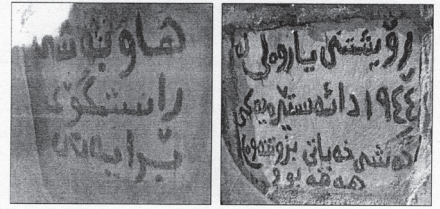 هاوبەشی
ڕاستگۆی
برایەتی
ڕۆیشتنی یارەلی لە
١٩٤٤ دائەستێرەیەکی
گەشی خەباتی بزوتنەوەی
هەقە بوو